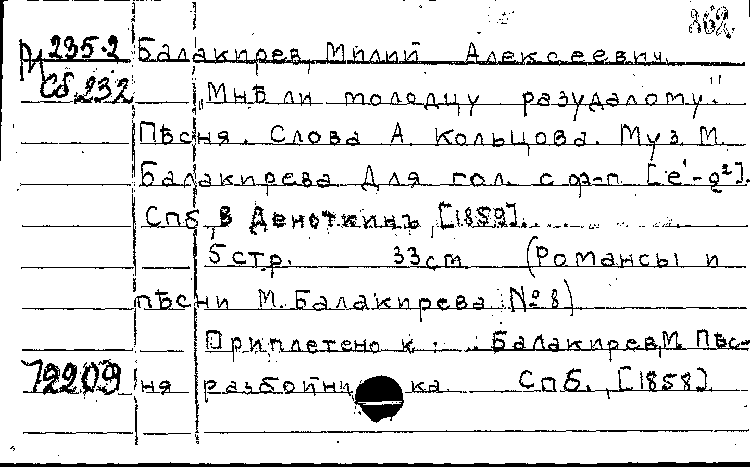 862.
М 235.2 Балакирев, Милий Алексеевич.
Сб 232 „Мнѣ ли молодцу разудалому".
Пѣсня. Слова А. Кольцова. Муз. М.
Балакирева Для гол. с ф-п [e¹-g²].
Спб, В Деноткинъ, [1859].
5 стр. 33 cm (Романсы и
пѣсни М. Балакирева № 8)
Приплетено к: Балакирев, М. Пѣс-
72209 ня разбойника Спб., [1858].